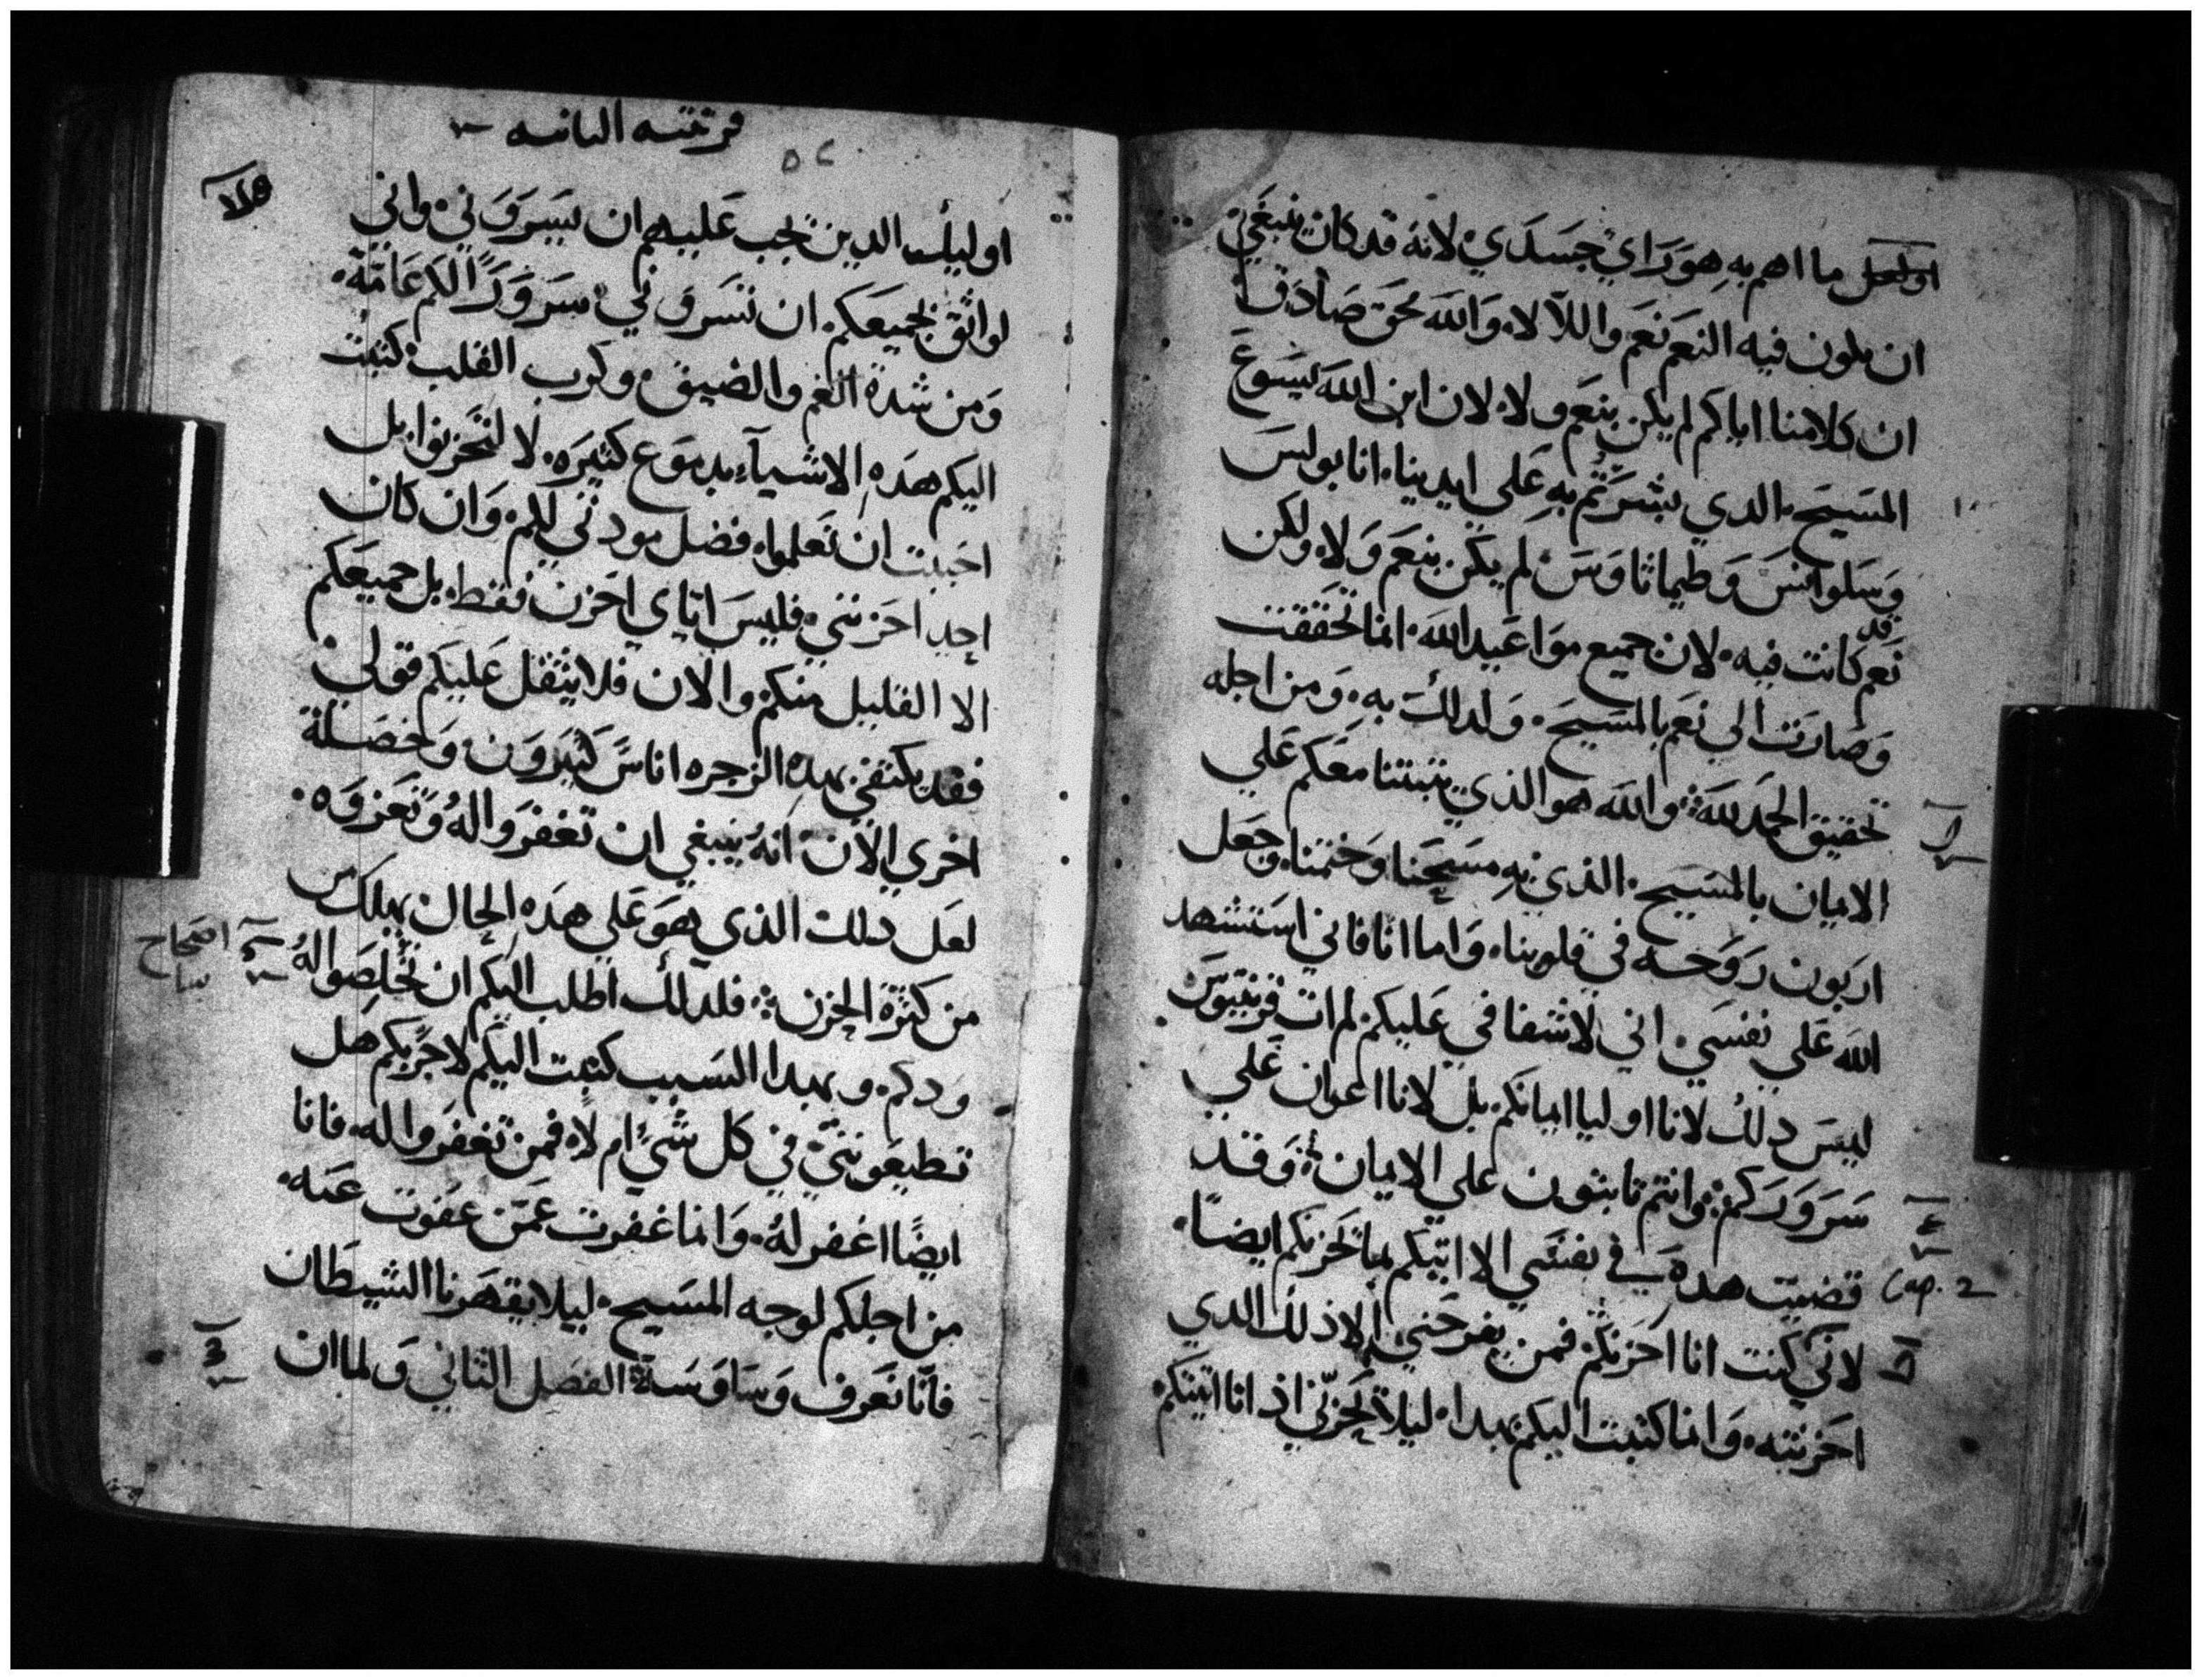 اولعل ما اهم به هو راي جسدي لانه قد كان ينبغي
ان يكون فيه النعم نعم واللا لا، والله محق صادق
ان كلامنا اياكم لم يكن بنعم ولا، لان ابن الله يسوع
المسيح، الدي بشرتم به على ايدينا، انا بولس
وسلوانس وطيماثاوس لم يكن بنعم ولا، ولكن
قد
نعم كانت فيه، لان جميع مواعيد الله، انما تحققت
وصارت الي نعم بالمسيح، ولدلك به، ومن اجله
تحقيق الحمد لله، والله هو الذي يثبتنا معكم علي
الايمان بالمسيح، الذي به مسحنا وختمنا وجعل
اربون روحه في قلوبنا، واما انا فاني استشهد
الله علي نفسي، اني لاشفاقي عليكم لم ات قرنتيوس،
ليس دلك لانا اوليا ايمانكم، بل لانا اعوان علي
سروركم، وانتم ثابتون على الايمان، وقد
Cap. 2
قضيت هده في نفسي الا اتيكم بما تحزنكم ايضا،
لاني كنت انا احزنكم فمن يفرحني الا ذلك الدي
احزنته، وانما كتبت اليكم بهدا، ليلا تحزني اذ انا اتيتكم
قرنتيه الثانيه
اوليك الدين تجب عليهم ان يسروني، واني
لواثق بجميعكم ان تسروني، سرورا لكم عامة،
ومن شدة الغم والضيق، وكرب القلب، كتبت
اليكم هده الاشيآء بدموع كثيره، لا لتحزنوا، بل
احببت ان تعلموا، فضل مودتي لكم، وان كان
احد احزنني، فليس اياي احزن فقط، بل جميعكم
الا القليل منكم، والان فلا يثقل عليكم قولي
فقد يكتفي بهده الزجره اناس كثيرون، وخصلة
اخري الان، انه ينبغي ان تغفروا له وتعزوه،
لعل دلك الذي هو علي هده الحال، يهلك
من كثرة الحزن، فلدلك اطلب اليكم ان تخلصوا له
اصحاح
ودكم، وبهدا السبب كتبت اليكم لاجربكم هل
تطيعونني في كل شيء ام لا، فمن تغفروا له، فانا
ايضا اغفر له، وانما غفرت عمن عفوت عنه،
من اجلكم لوجه المسيح، ليلا يقهرنا الشيطان
فانا نعرف وساوسه، الفصل الثاني ولما ان